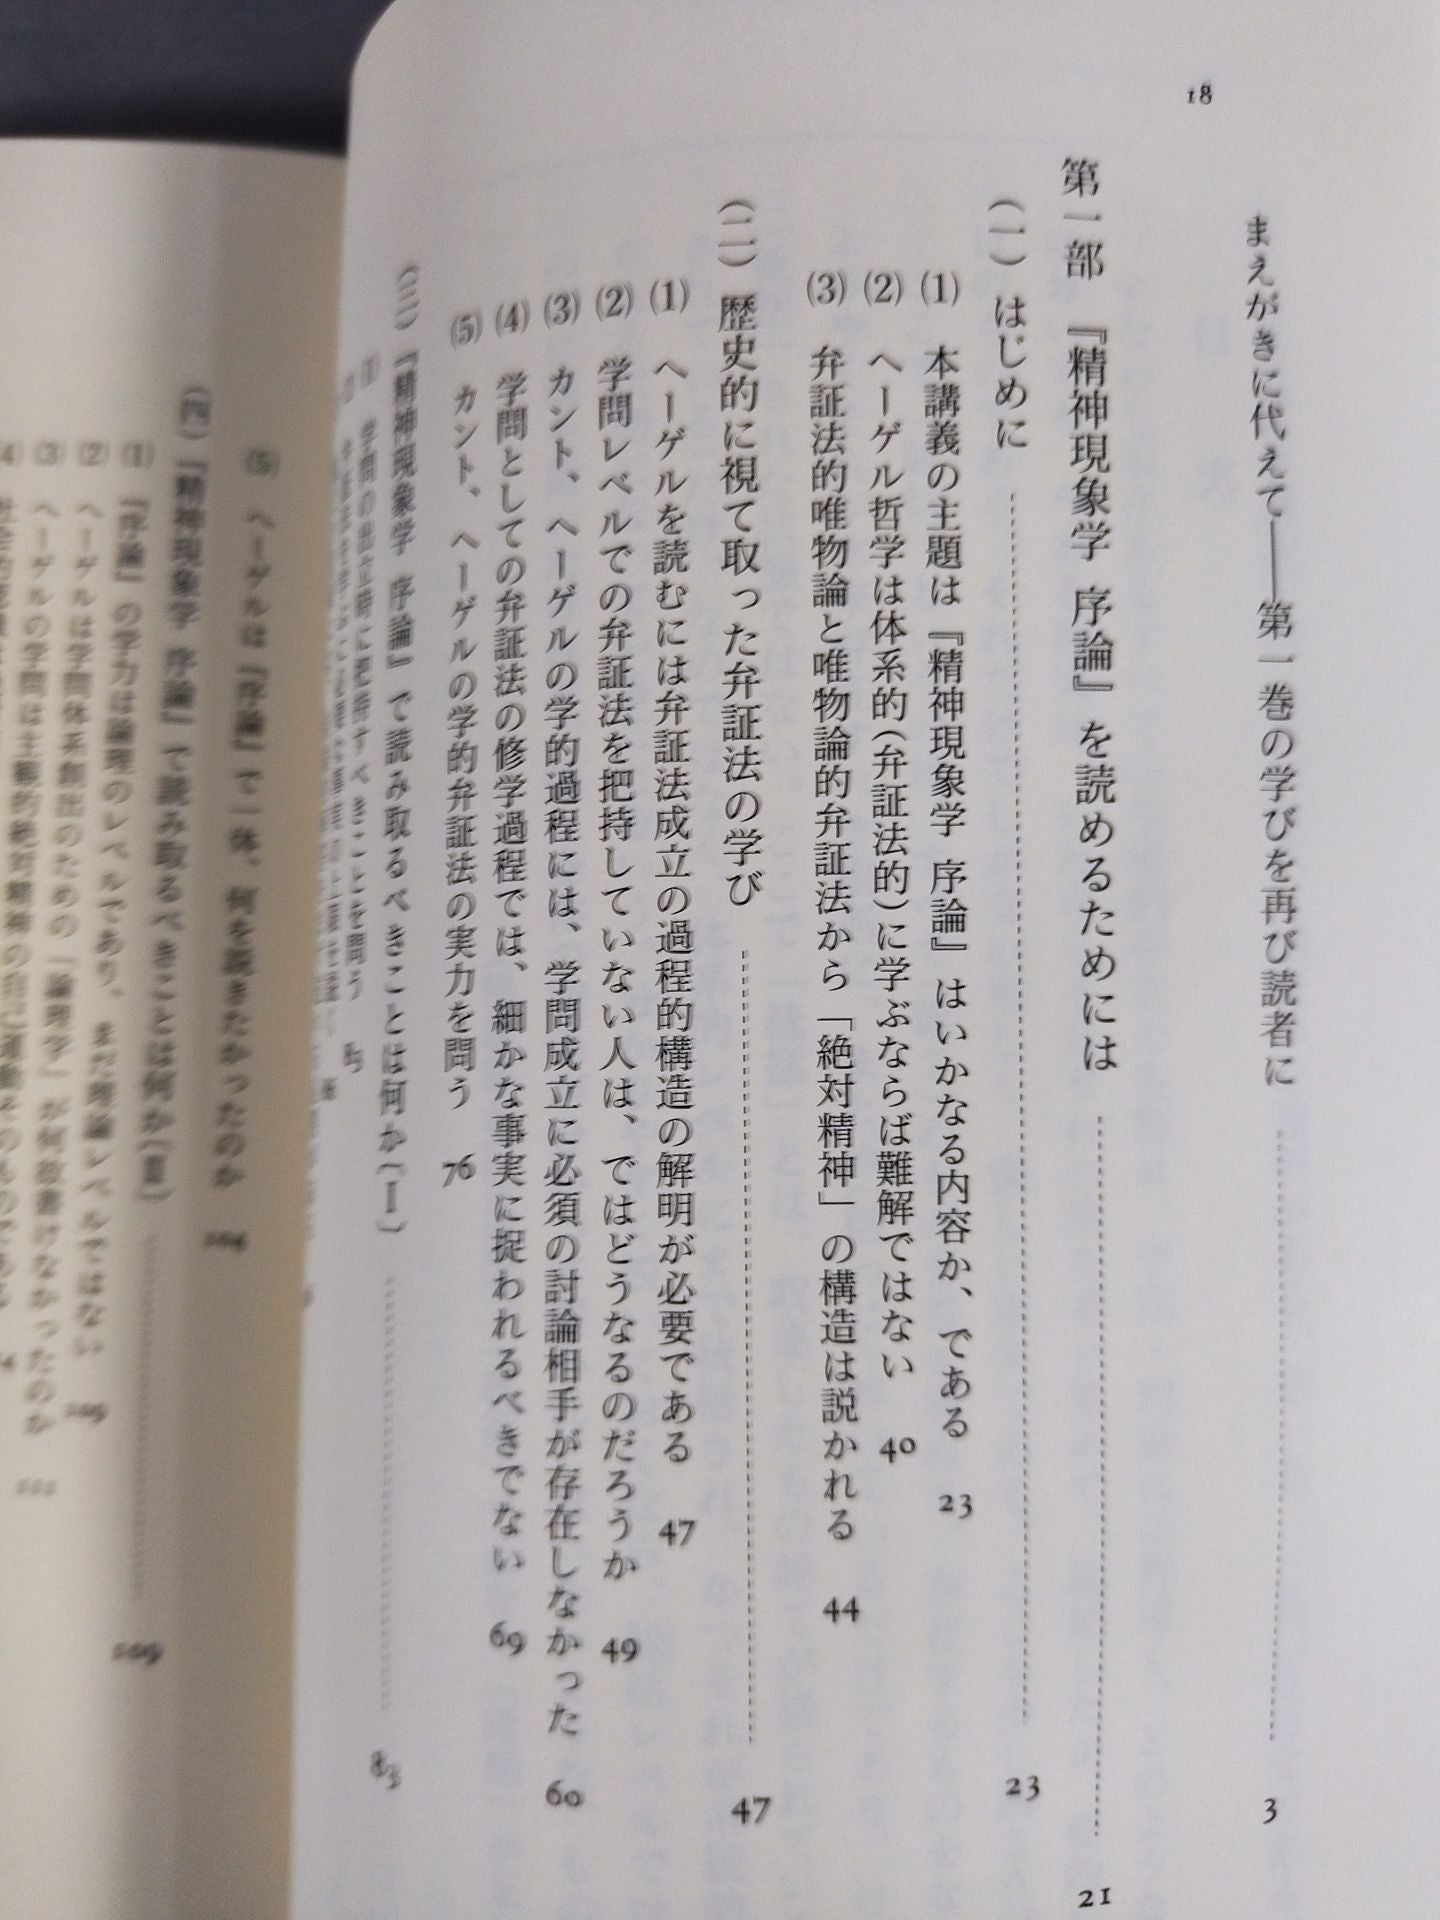 18
まえがきに代えて――第一巻の学びを再び読者に 3
第一部 『精神現象学 序論』を読めるためには 21
(一) はじめに 23
(1) 本講義の主題は『精神現象学 序論』はいかなる内容か、である 23
(2) ヘーゲル哲学は体系的(弁証法的)に学ぶならば難解ではない 40
(3) 弁証法的唯物論と唯物論的弁証法から「絶対精神」の構造は説かれる 44
(二) 歴史的に視て取った弁証法の学び 47
(1) ヘーゲルを読むには弁証法成立の過程的構造の解明が必要である 47
(2) 学問レベルでの弁証法を把持していない人は、ではどうなるのだろうか 49
(3) カント、ヘーゲルの学的過程には、学問成立に必須の討論相手が存在しなかった 60
(4) 学問としての弁証法の修学過程では、細かな事実に捉われるべきでない 69
(5) カント、ヘーゲルの学的弁証法の実力を問う 76
(三) 『精神現象学 序論』で読み取るべきことは何か〔Ⅰ〕 83
(1) 学問の出立時に把持すべきことを問う 85
(5) ヘーゲルは『序論』で一体、何を説きたかったのか 104
(四) 『精神現象学 序論』で読み取るべきことは何か〔Ⅱ〕 109
(1) 『序論』の学力は論理のレベルであり、まだ理論レベルではない 109
(2) ヘーゲルは学問体系創出のための「論理学」が何故書けなかったのか 111
(3) ヘーゲルの学問は主観的絶対精神の自己運動そのものである
(4)